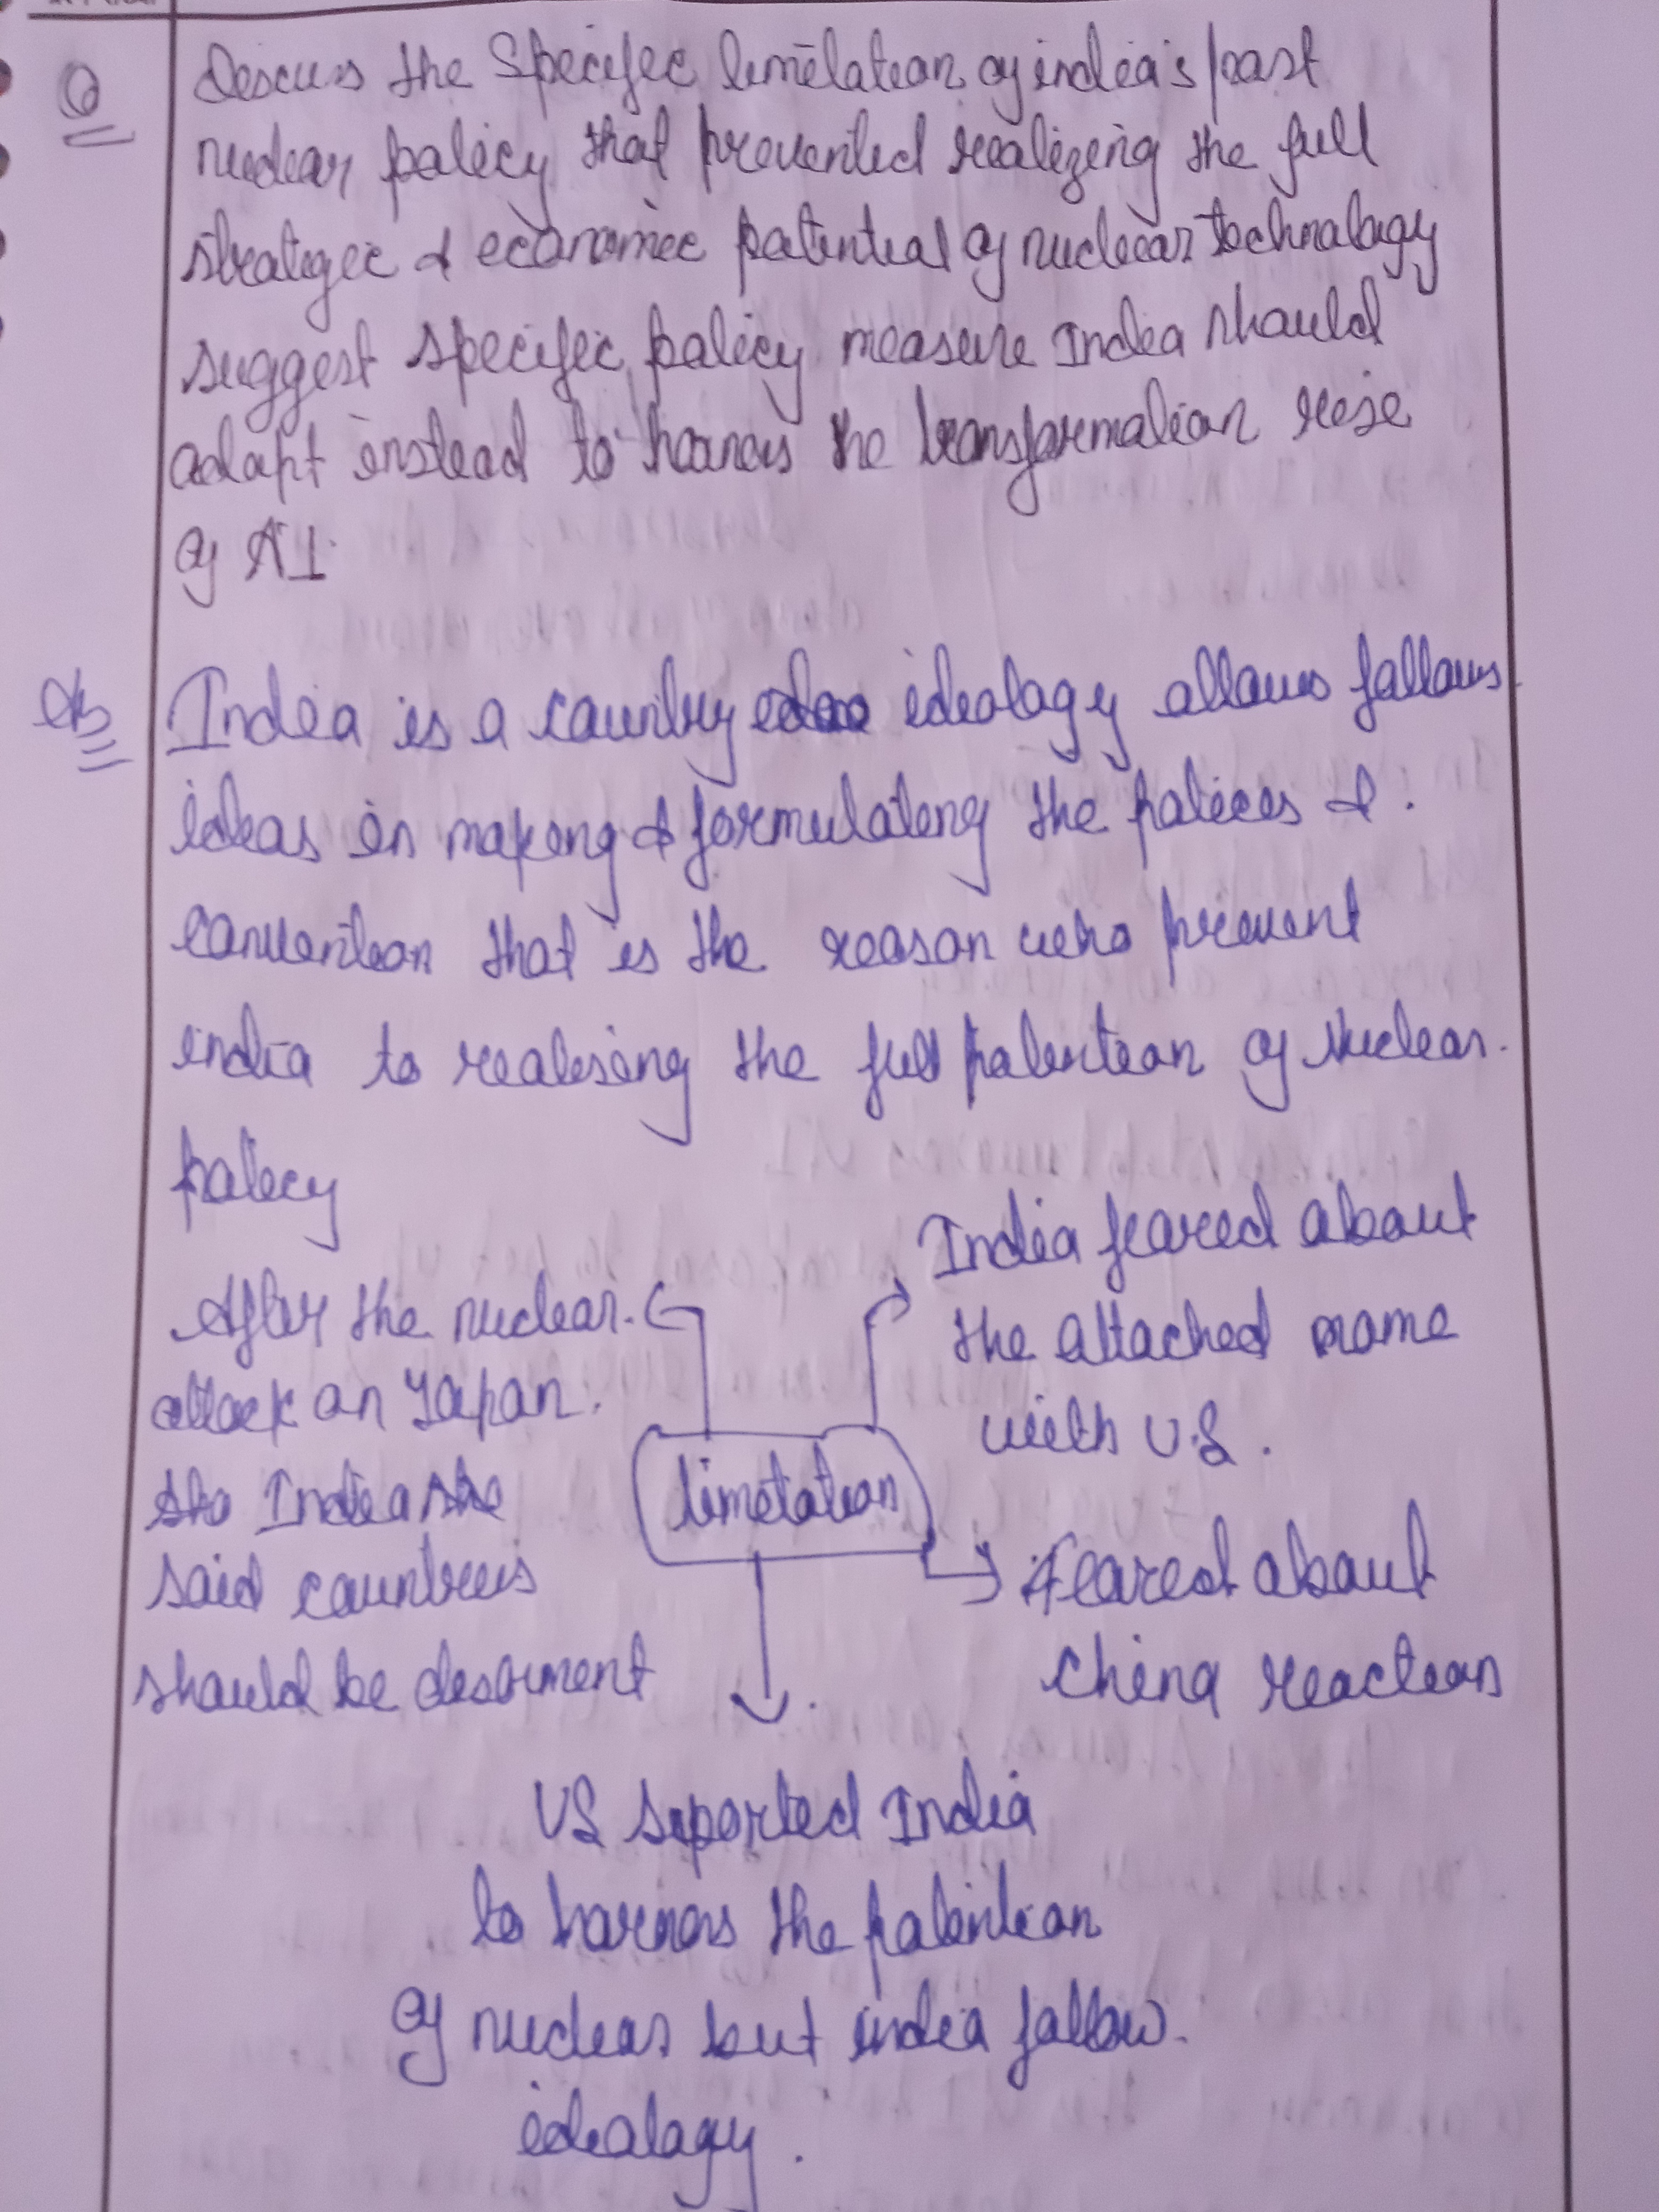 Q
Discuss the Specific limitation of india's past
nuclear policy that prevented realizing the full
strategic & economic potential of nuclear technology
suggest specific policy measure India should
adapt instead to harness the transformation rise
of AI.
Ans
India is a country ideology allows follows
ideas in making & formulating the policies &
convention that is the reason who prevent
india to realising the full potention of Nuclear
policy
After the nuclear
attack on Japan.
the India she
said countries
should be desarment
India feared about
the attached name
with U.S.
limetation
feared about
china reactions
US suported India
to harness the potention
of nuclear but india follow
idealogy.